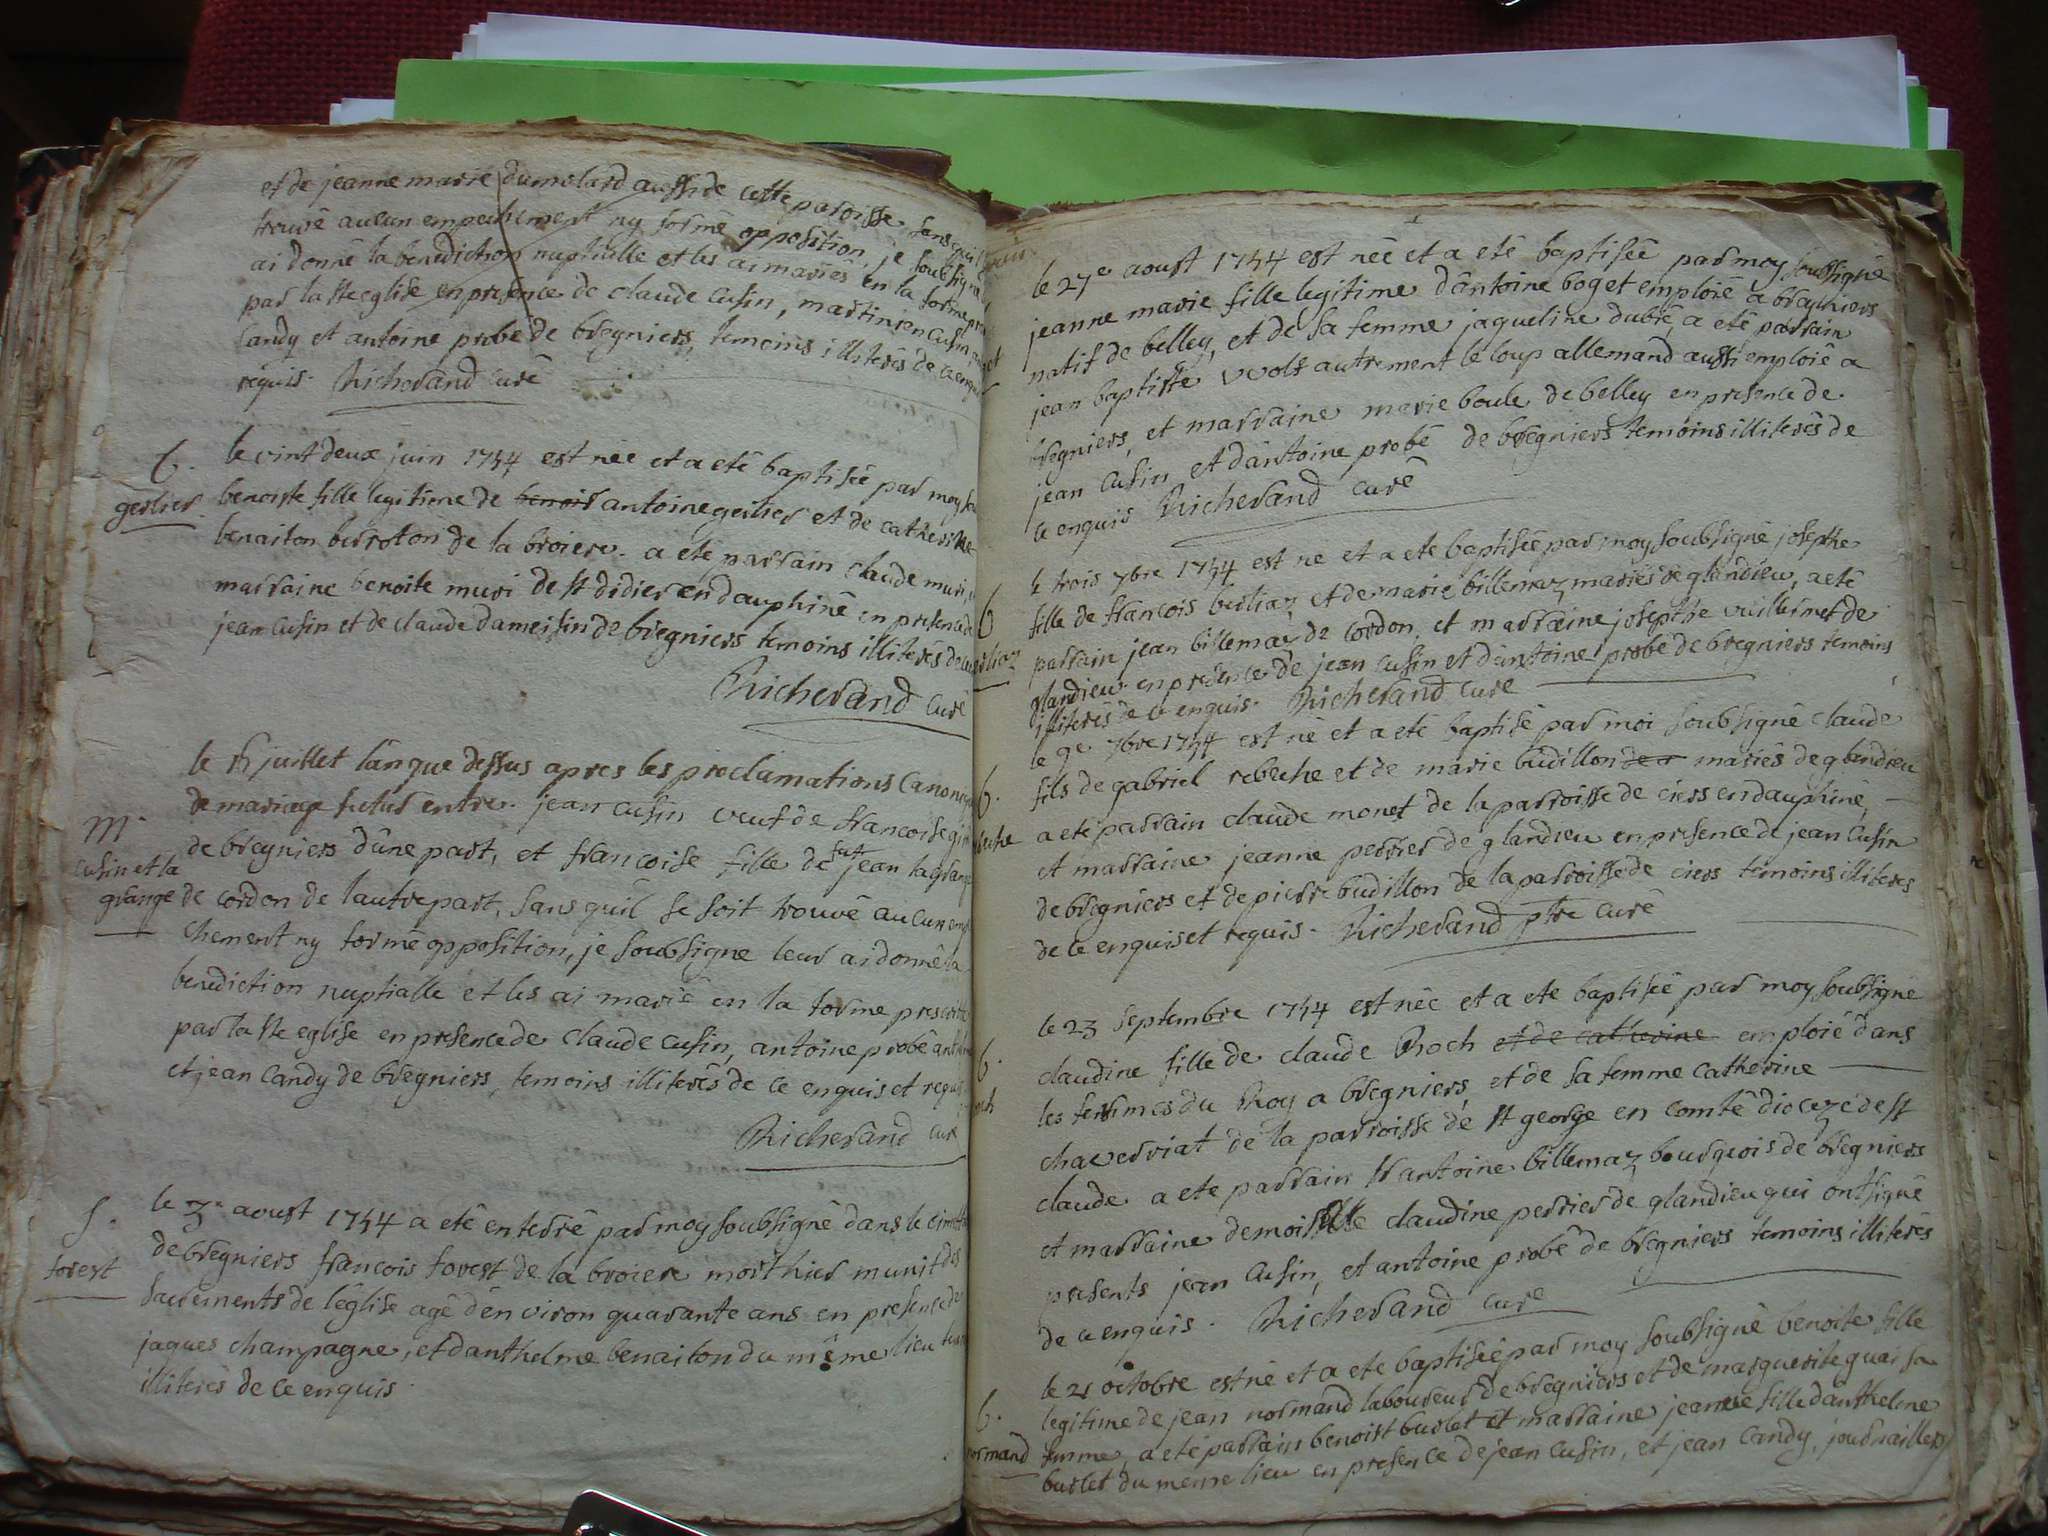 et de jeanne marie dumolard aussi de cette paroisse sans quil
trouvé aucun empechement ny formé opposition, je soubsigné
ai donné la benediction nuptialle et les ai mariés en la forme
par la ste eglise en présence de claude cusin, martinien cusin,
candy et antoine probé de bregniers, temoins illiterés de ce enquis
requis. Richerand curé
b. le vint deux juin 1754 est née et a eté baptisée par moy
gerlier benoiste fille legitime de benoit antoine gerlier et de catherine
benaiton burroton de la broiere. a eté parrain claude muri,
marraine benoite muri de st didier en dauphiné en presence de
jean cusin et de claude dameisin de bregniers temoins illiteres de ce
Richerand curé
le 15 juillet lan que dessus apres les proclamations canoniq
m. de mariage futur entre jean cusin veuf de francoise
de bregniers dune part, et francoise fille de fut jean lagrange
cusin et la
grange de cordon de lautre part, sans quil se soit trouvé aucun empe
chement ny formé opposition, je soubsigné leur ai donné la
benediction nuptialle et les ai marié en la forme prescritte
par la ste eglise en presence de claude cusin, antoine probé
et jean candy de bregniers, temoins illiterés de ce enquis et requis
Richerand curé
s. le 3e aoust 1754 a eté enterré par moy soubsigné dans le cimit
forest de bregniers francois forest de la broiere mort hier munit des
sacrements de léglise agé d'environ quarante ans en presence de
jaques champagne, et danthelme benaiton du même lieu
illiterés de ce enquis.
le 27e aoust 1754 est née et a eté baptisée par moy soubsigné
jeanne marie fille legitime dantoine boget emploié a bregniers
natif de belley, et de sa femme jaqueline dubré, a eté parrain
jean baptiste wolf autrement le loup allemand aussi emploié a
bregniers, et marraine marie boule de belley en presence de
jean cusin et dantoine probé de bregniers temoins illiterés de
ce enquis Richerand curé
b. le trois 7bre 1754 est né et a eté baptisée par moy soubsigné josephe
fille de francois berliaz et de marie billemaz mariés de glandieu, a eté
parrain jean billemaz de cordon, et marraine josephe vuillermet de
glandieu en présence de jean cusin et dantoine probé de bregniers temoins
illiterés de ce enquis. Richerand curé
le 9e 7bre 1754 est né et a eté baptisé par moi soubsigné claude
b. fils de gabriel rebeche et de marie budillon de mariés de glandieu
a eté parrain claude monet de la parroisse de ciers en dauphiné,
et marraine jeanne perrier de glandieu en presence de jean cusin
de bregniers et de pierre budillon de la parroisse de ciers temoins illiteres
de ce enquis et requis. Richerand ptre curé
le 23 septembre 1754 est née et a eté baptisée par moy soubsigné
b. claudine fille de claude Roch et de catherine emploié dans
les fermes du Roy a bregniers, et de sa femme catherine
chaverriat de la parroisse de st george en comté dioceze de st
claude a eté parrain sr antoine billemaz bourgeois de bregniers
et marraine demoiselle claudine perrier de glandieu qui ont signé
presents jean cusin, et antoine probé de bregniers temoins illiterés
de ce enquis. Richerand curé
le 21 octobre est né et a eté baptisée par moy soubsigné benoite fille
b. legitime de jean normand laboureur de bregniers et de marguerite quai sa
normand femme, a eté parrain benoist burlet et marraine jeanne fille danthelme
burlet du meme lieu en presence de jean cusin, et jean candy, journailliers